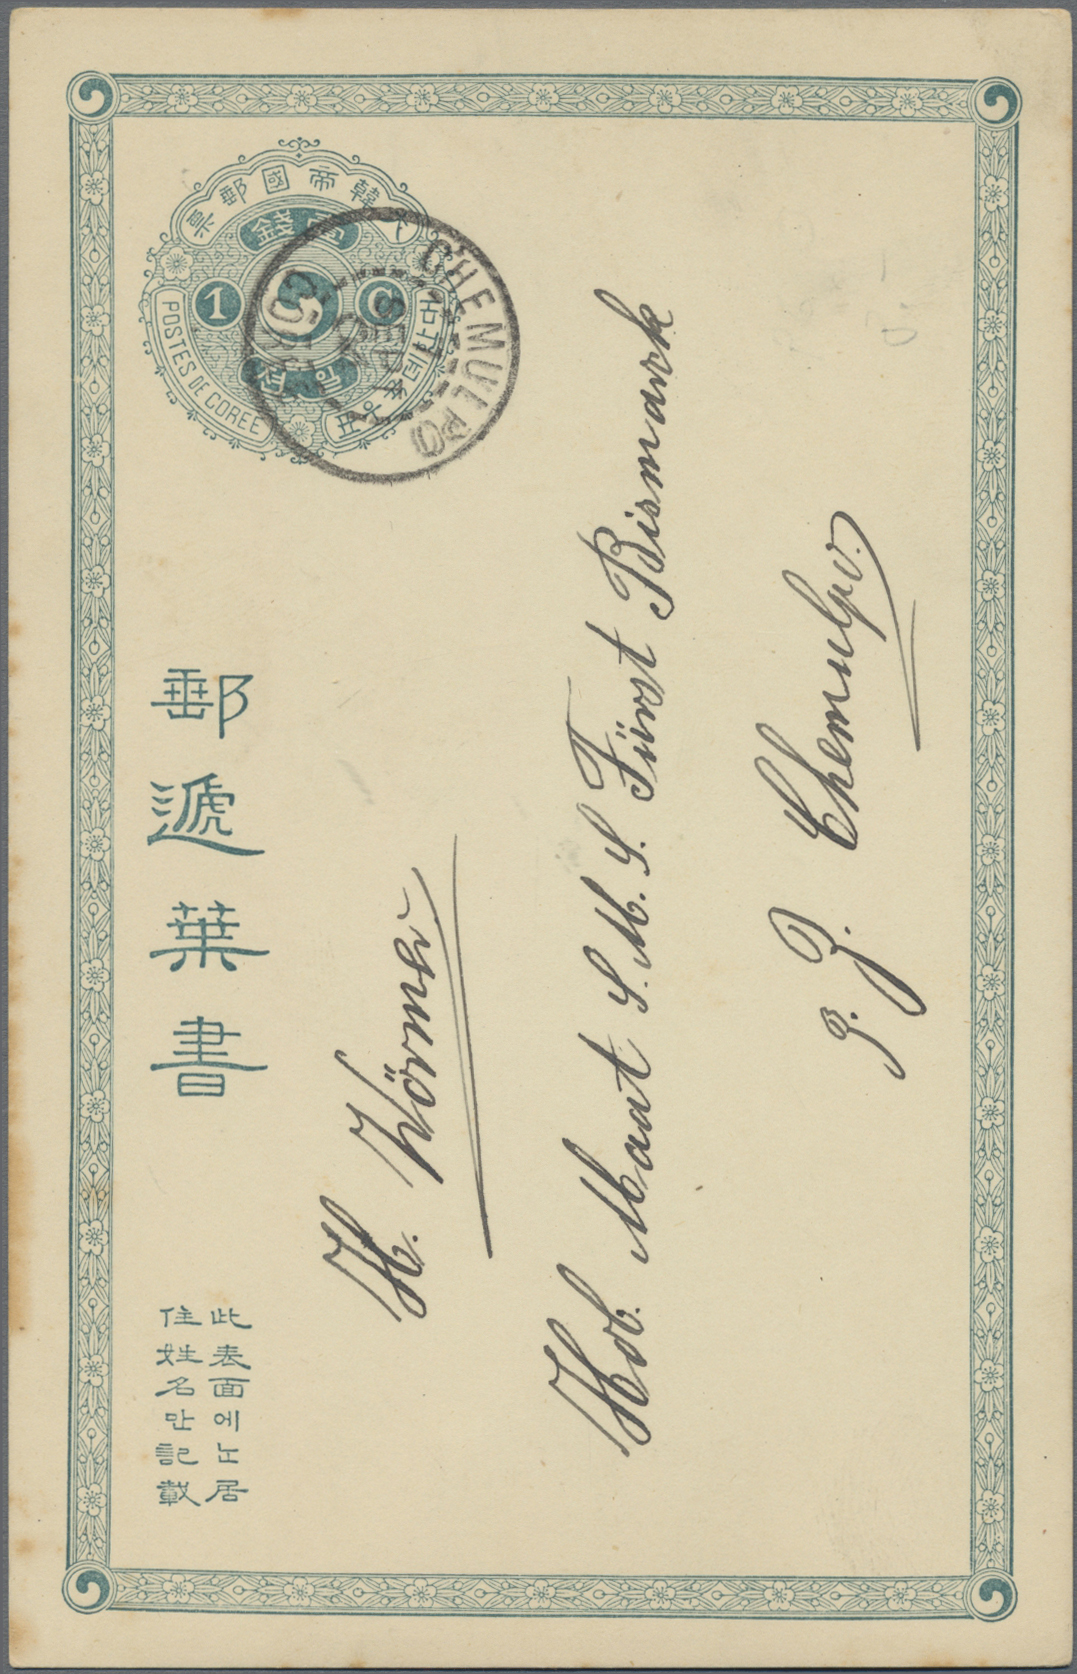 大韓帝國郵票
壹錢
1
C
일젼
POSTES DE COREE
CHEMULPO
SEPT
郵遞葉書
此表面에난居
住姓名만記載
H. Wörner
Hob. Maat S.M.S. Fürst Bismark
z. Z. Chemulpo.